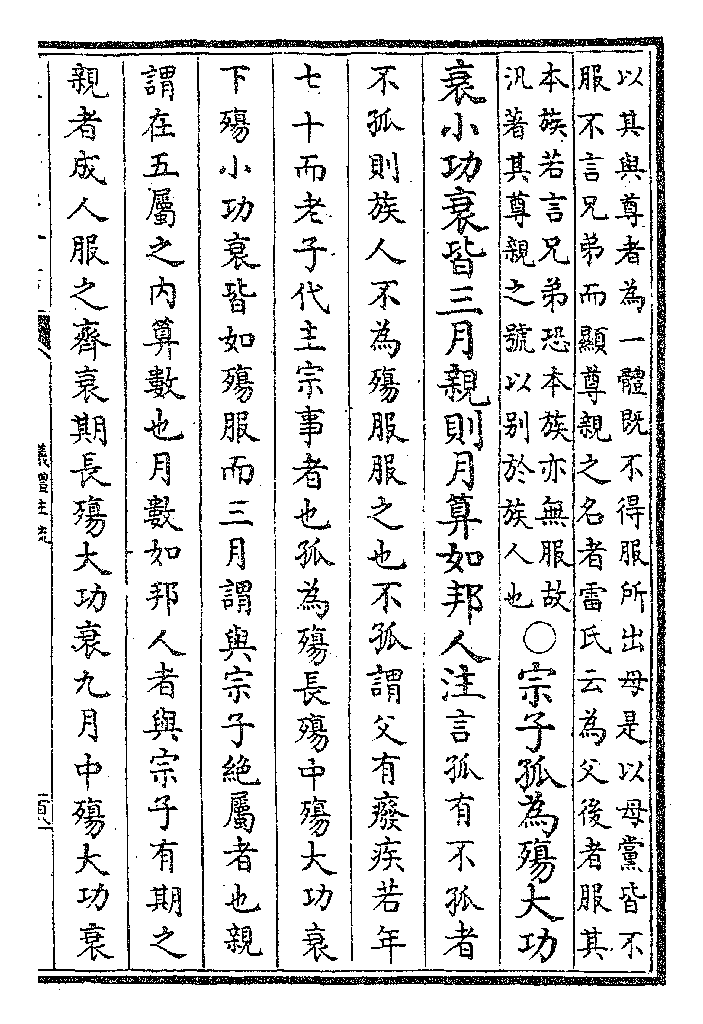 以其與尊者為一體既不得服所出母是以母黨皆不
服不言兄弟而顯尊親之名者雷氏云為父後者服其
本族若言兄弟恐本族亦無服故
汎著其尊親之號以別於族人也
○宗子孤為殤大功
衰小功衰皆三月親則月算如邦人注言孤有不孤者
不孤則族人不為殤服服之也不孤謂父有癈疾若年
七十而老子代主宗事者也孤為殤長殤中殤大功衰
下殤小功衰皆如殤服而三月謂與宗子絶屬者也親
謂在五屬之內算數也月數如邦人者與宗子有期之
親者成人服之齊衰期長殤大功衰九月中殤大功衰
儀禮注疏